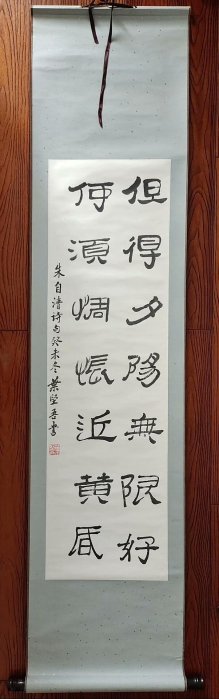 但得夕陽無限好
何須惆悵近黄昏
朱自清詩句癸未冬葉堅吾書